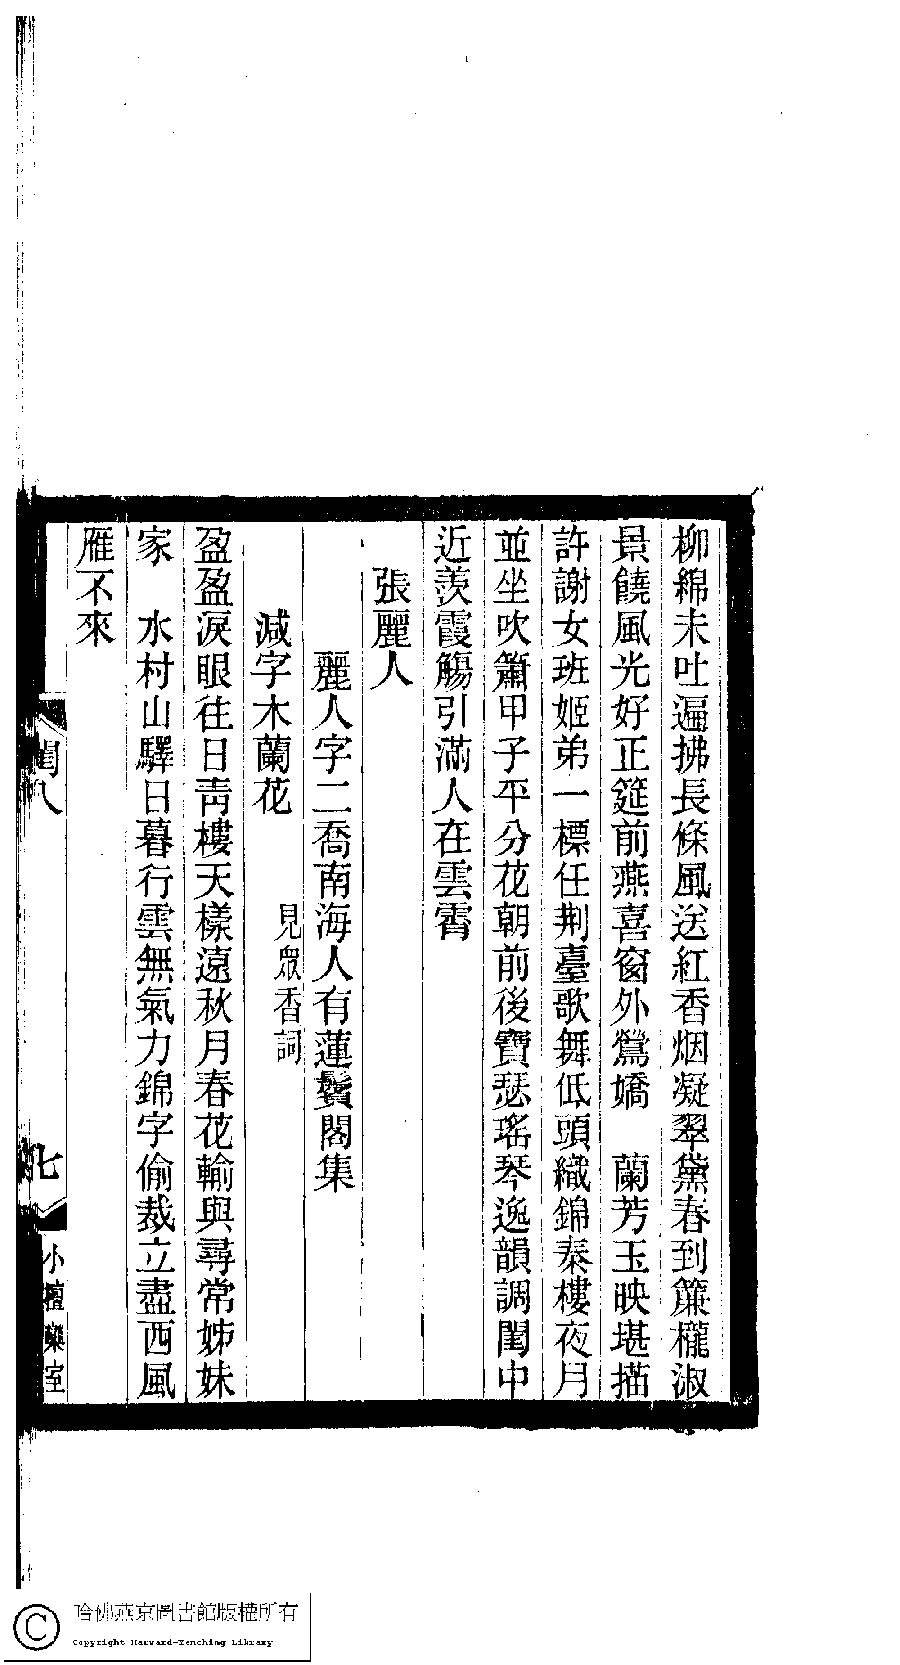 柳綿未吐遍拂長條風送紅香烟凝翠黛春到簾櫳淑
景饒風光好正筵前燕喜窗外鶯嬌　蘭芳玉映堪描
許謝女班姬弟一標任荆臺歌舞低頭織錦秦樓夜月
並坐吹簫甲子平分花朝前後寶瑟瑤琴逸韻調閨中
近羨霞觴引滿人在雲霄
張麗人
麗人字二喬南海人有蓮鬢閣集
減字木蘭花
見眾香詞
盈盈淚眼往日靑樓天樣遠秋月春花輸與尋常姊妹
家　水村山驛日暮行雲無氣力錦字偷裁立盡西風
雁不來
閨八
七
小檀欒室
哈佛燕京圖書館版權所有
Copyright Harvard-Yenching Library